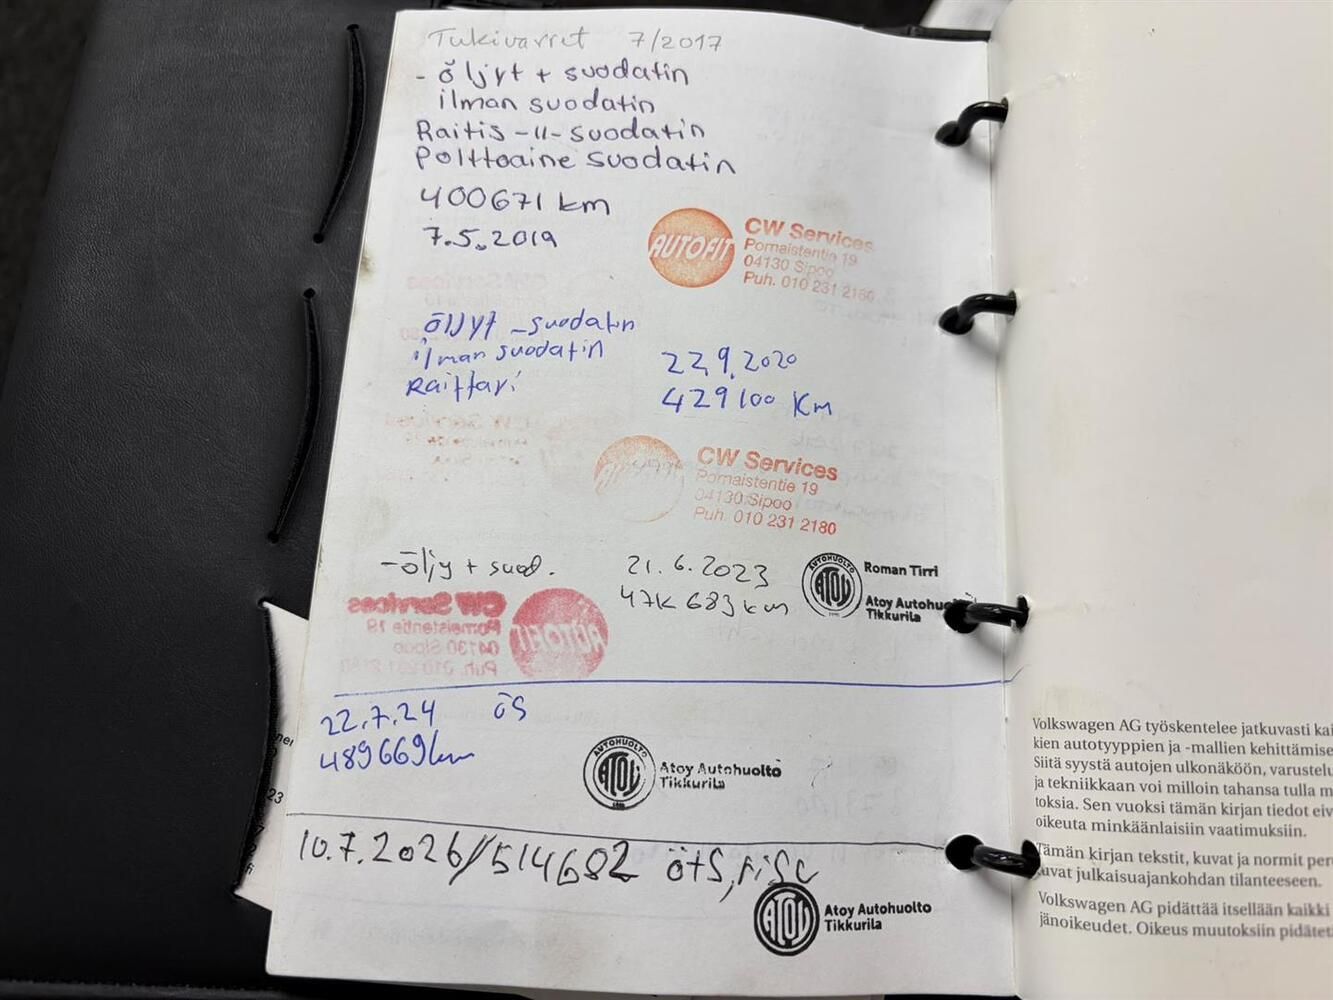 Tukivarret 7/2017
- öljyt + suodatin
ilman suodatin
Raitis -11- suodatin
Polttoaine suodatin
400671 km
7.5.2019
AUTOFIT
CW Services
Pornaistentie 19
04130 Sipoo
Puh. 010 231 2180
öljyt - suodatin
ilman suodatin
Raittari
22.9.2020
429100 km
CW Services
Pornaistentie 19
04130 Sipoo
Puh. 010 231 2180
- öljy + suod.
21.6.2023
47K 683 km
AUTOHUOLTO
ATOY
Roman Tirri
Atoy Autohuo
Tikkurila
CW Services
Pornaistentie 19
04130 Sipoo
Puh. 010 231 2180
AUTOFIT
22.7.24 ÖS
489669 km
AUTOHUOLTO
ATOY
Atoy Autohuolto
Tikkurila
10.7.2026/514682 ötS,
AUTOHUOLTO
ATOY
Atoy Autohuolto
Tikkurila
23
Volkswagen AG työskentelee jatkuvasti kai
kien autotyyppien ja -mallien kehittämise
Siitä syystä autojen ulkonäköön, varustelu
ja tekniikkaan voi milloin tahansa tulla m
toksia. Sen vuoksi tämän kirjan tiedot eiv
oikeuta minkäänlaisiin vaatimuksiin.
Tämän kirjan tekstit, kuvat ja normit per
uvat julkaisuajankohdan tilanteeseen.
Volkswagen AG pidättää itsellään kaikki
jänoikeudet. Oikeus muutoksiin pidätet